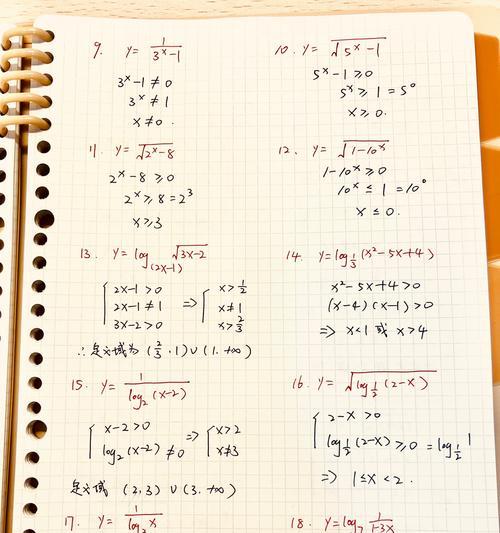 9. y = 1/(3^x-1)
3^x-1 ≠ 0
3^x ≠ 1
x ≠ 0.
10. y = √(5^x-1)
5^x-1 ≥ 0
5^x ≥ 1 = 5^0
x ≥ 0.
11. y = √(2^x-8)
2^x-8 ≥ 0
2^x ≥ 8 = 2^3
x ≥ 3
12. y = √(1-10^x)
1-10^x ≥ 0
10^x ≤ 1 = 10^0
x ≤ 0.
13. y = log_(2x-1) √(3x-2)
{ 2x-1 > 0 ⇒ { x > 1/2
2x-1 ≠ 1 x ≠ 1
3x-2 > 0 x > 2/3
∴ 定义域为 (2/3, 1) ∪ (1, +∞)
14. y = log_(1/3) (x²-5x+4)
x²-5x+4 > 0
(x-4)(x-1) > 0
⇒ x < 1 或 x > 4
15. y = 1/(log_2 (x-2))
{ x-2 > 0 ⇒ { x > 2
log_2 (x-2) ≠ 0 x ≠ 3
定义域 (2, 3) ∪ (3, +∞)
16. y = √(log_(1/2) (2-x))
{ 2-x > 0
log_(1/2) (2-x) ≥ 0 = log_(1/2) 1
⇒ 1 ≤ x < 2.
17. y = 1/(log_2 x)
18. y = log_7 1/(1-3x)